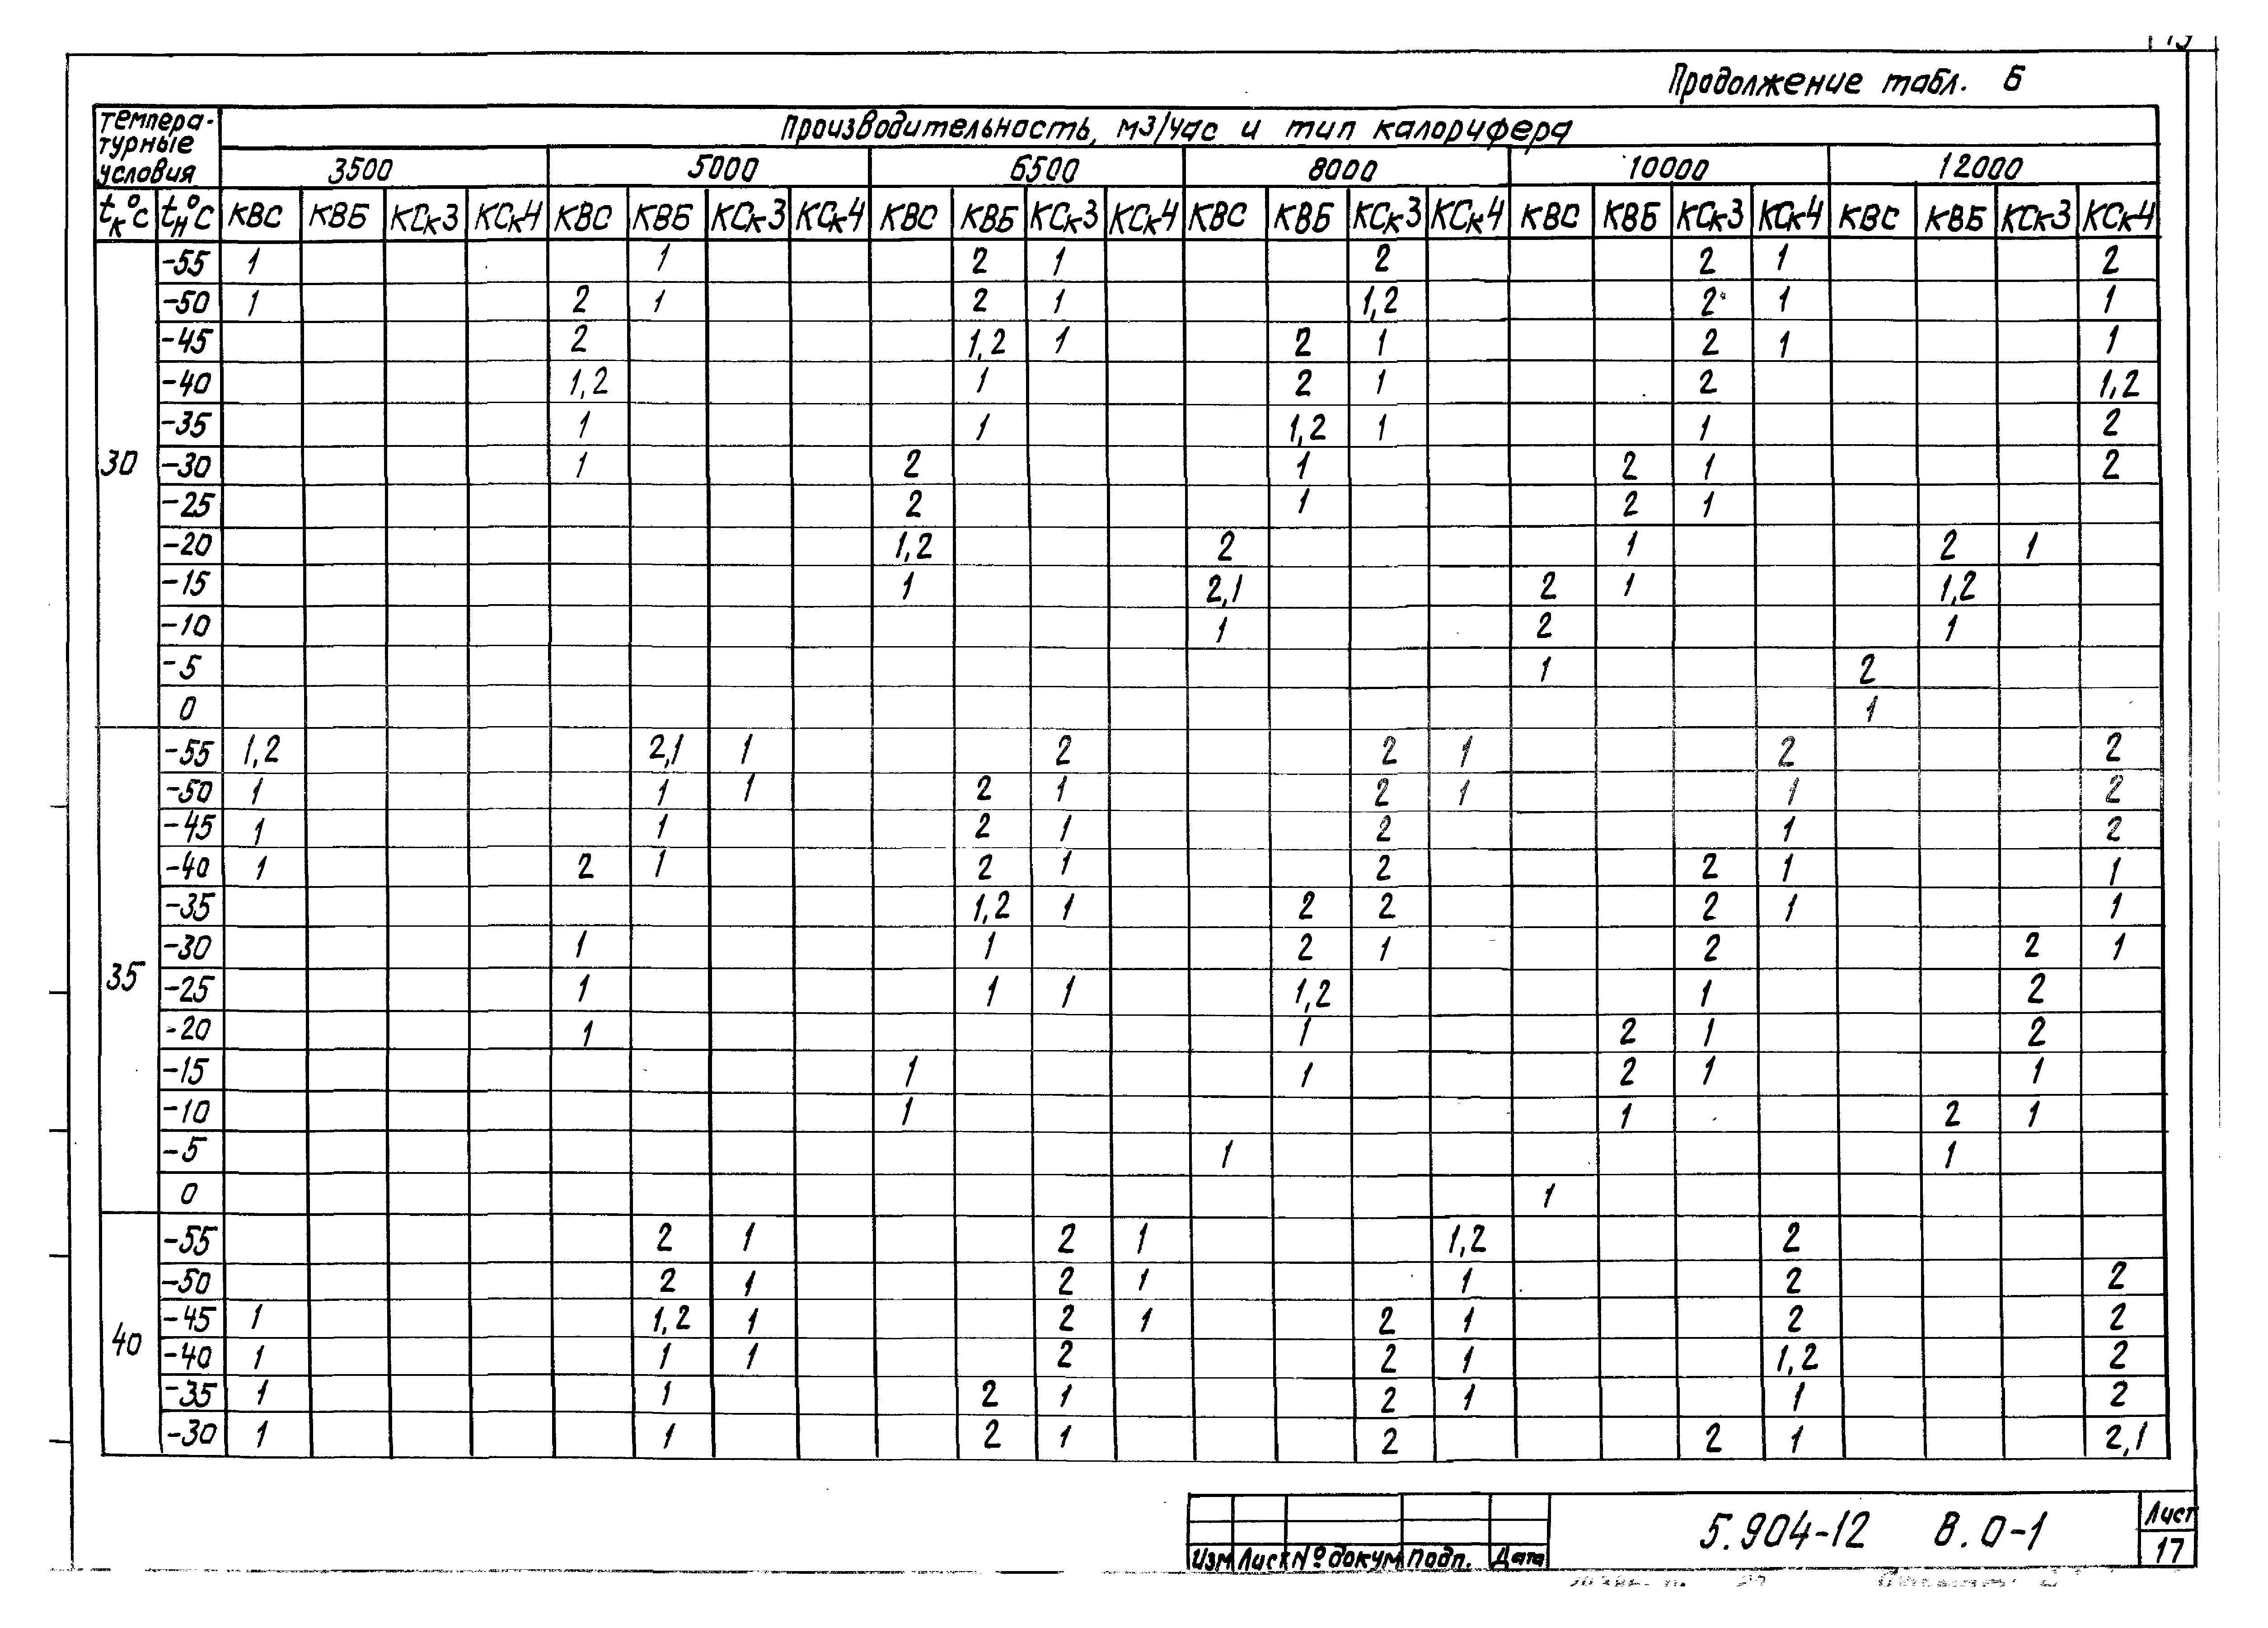 Продолжение табл. Б
Темпера-
турные
условия
Производительность, м3/час и тип калорифера
3500 5000 6500 8000 10000 12000
tк°С tн°С КВС КВБ КСк3 КСк4 КВС КВБ КСк3 КСк4 КВС КВБ КСк3 КСк4 КВС КВБ КСк3 КСк4 КВС КВБ КСк3 КСк4 КВС КВБ КСк3 КСк4
-55 1 1 2 1 2 2 1 2
-50 1 2 1 2 1 1,2 2 1 1
-45 2 1,2 1 2 1 2 1 1
-40 1,2 1 2 1 2 1,2
-35 1 1 1,2 1 1 2
30 -30 1 2 1 2 1 2
-25 2 1 2 1
-20 1,2 2 1 2 1
-15 1 2,1 2 1 1,2
-10 1 2 1
-5 1 2
0 1
-55 1,2 2,1 1 2 2 1 2 2
-50 1 1 1 2 1 2 1 1 2
-45 1 1 2 1 2 1 2
-40 1 2 1 2 1 2 2 1 1
-35 1,2 1 2 2 2 1 1
-30 1 1 2 1 2 2 1
35 -25 1 1 1 1,2 1 2
-20 1 1 2 1 2
-15 1 1 2 1 1
-10 1 1 2 1
-5 1 1
0 1
-55 2 1 2 1 1,2 2
-50 2 1 2 1 1 2 2
-45 1 1,2 1 2 1 2 1 2 2
40 -40 1 1 1 2 2 1 1,2 2
-35 1 1 2 1 2 1 1 2
-30 1 1 2 1 2 2 1 2,1
5.904-12 В.0-1
Лист
17
Изм Лист № докум Подп. Дата